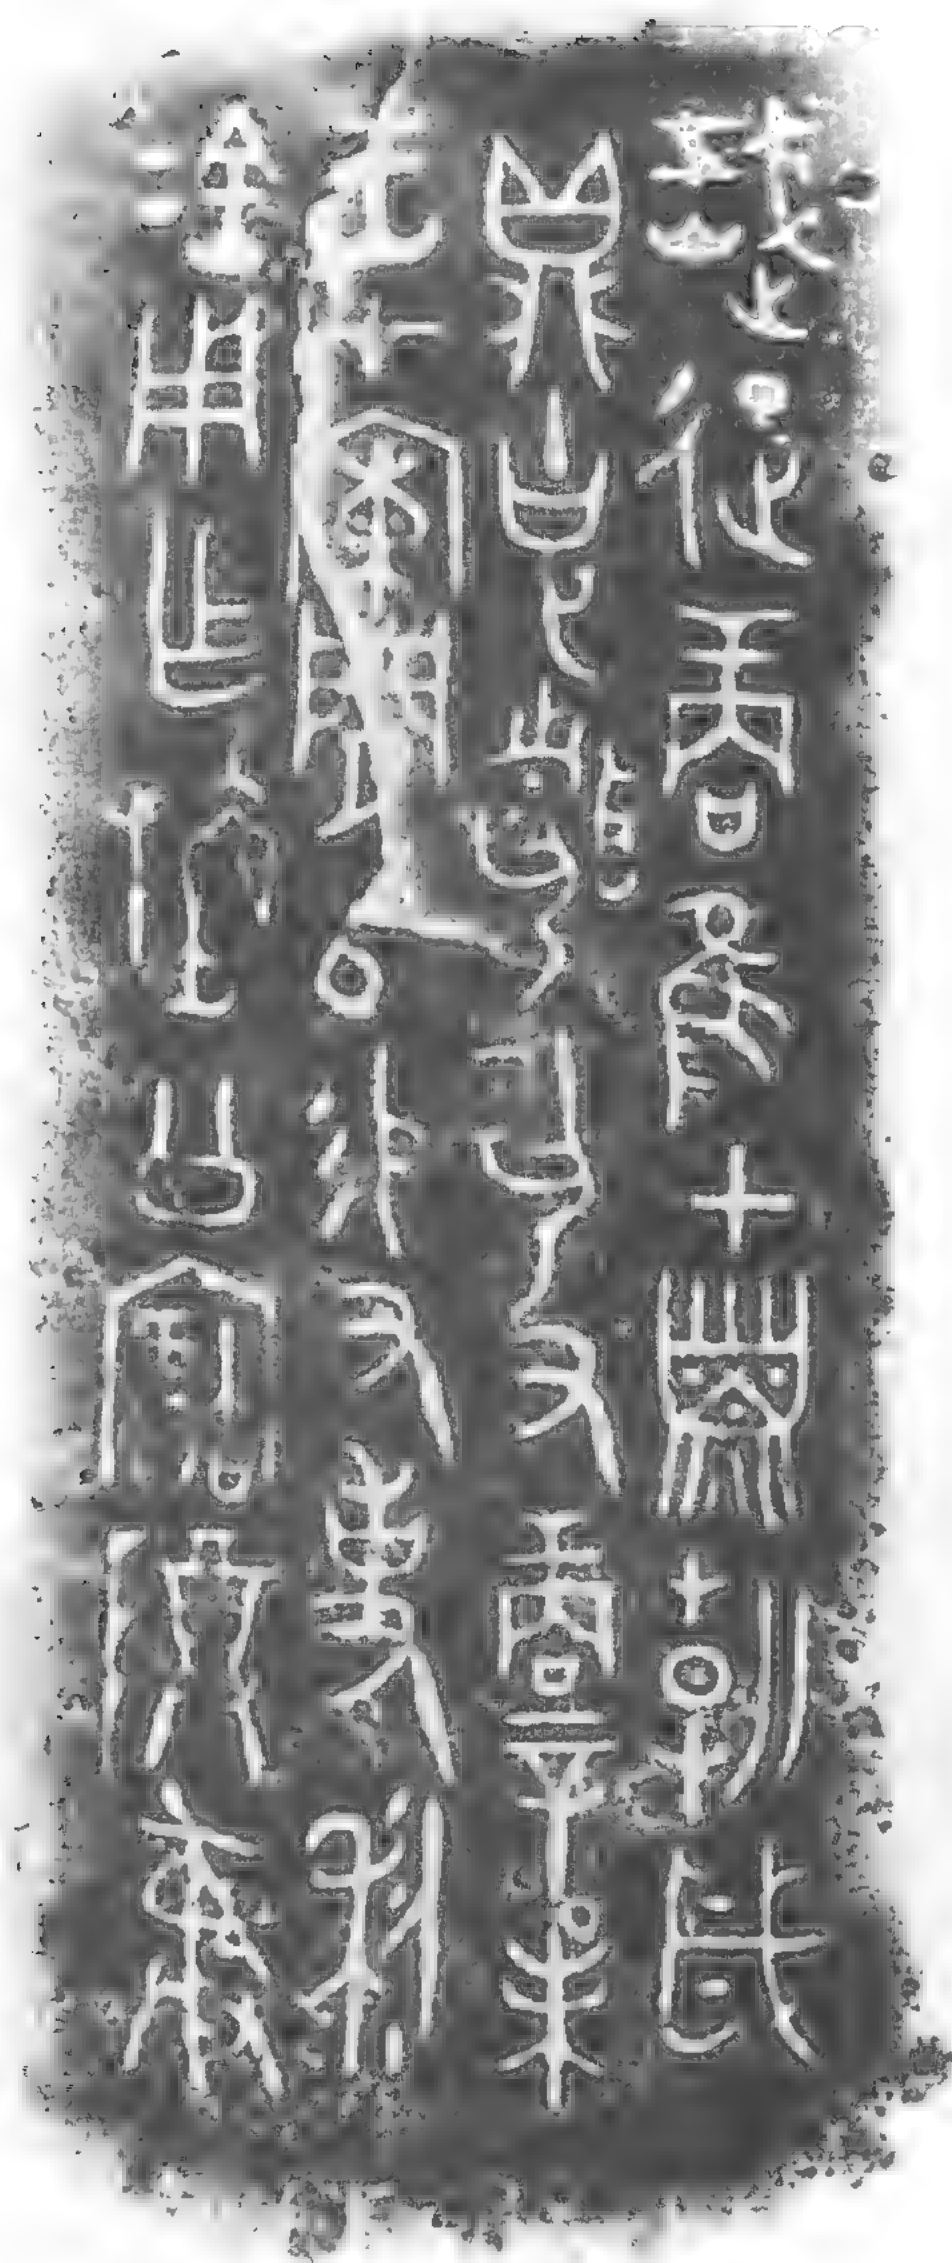 珷征商隹甲子朝歲
鼎克昏夙又商辛未
王才闌𠂤易又事利
金用乍𣄰公寶尊彝